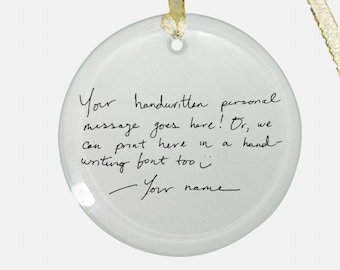 Your handwritten personal
message goes here! Or, we
can print here in a hand-
writing font too :)
— Your name